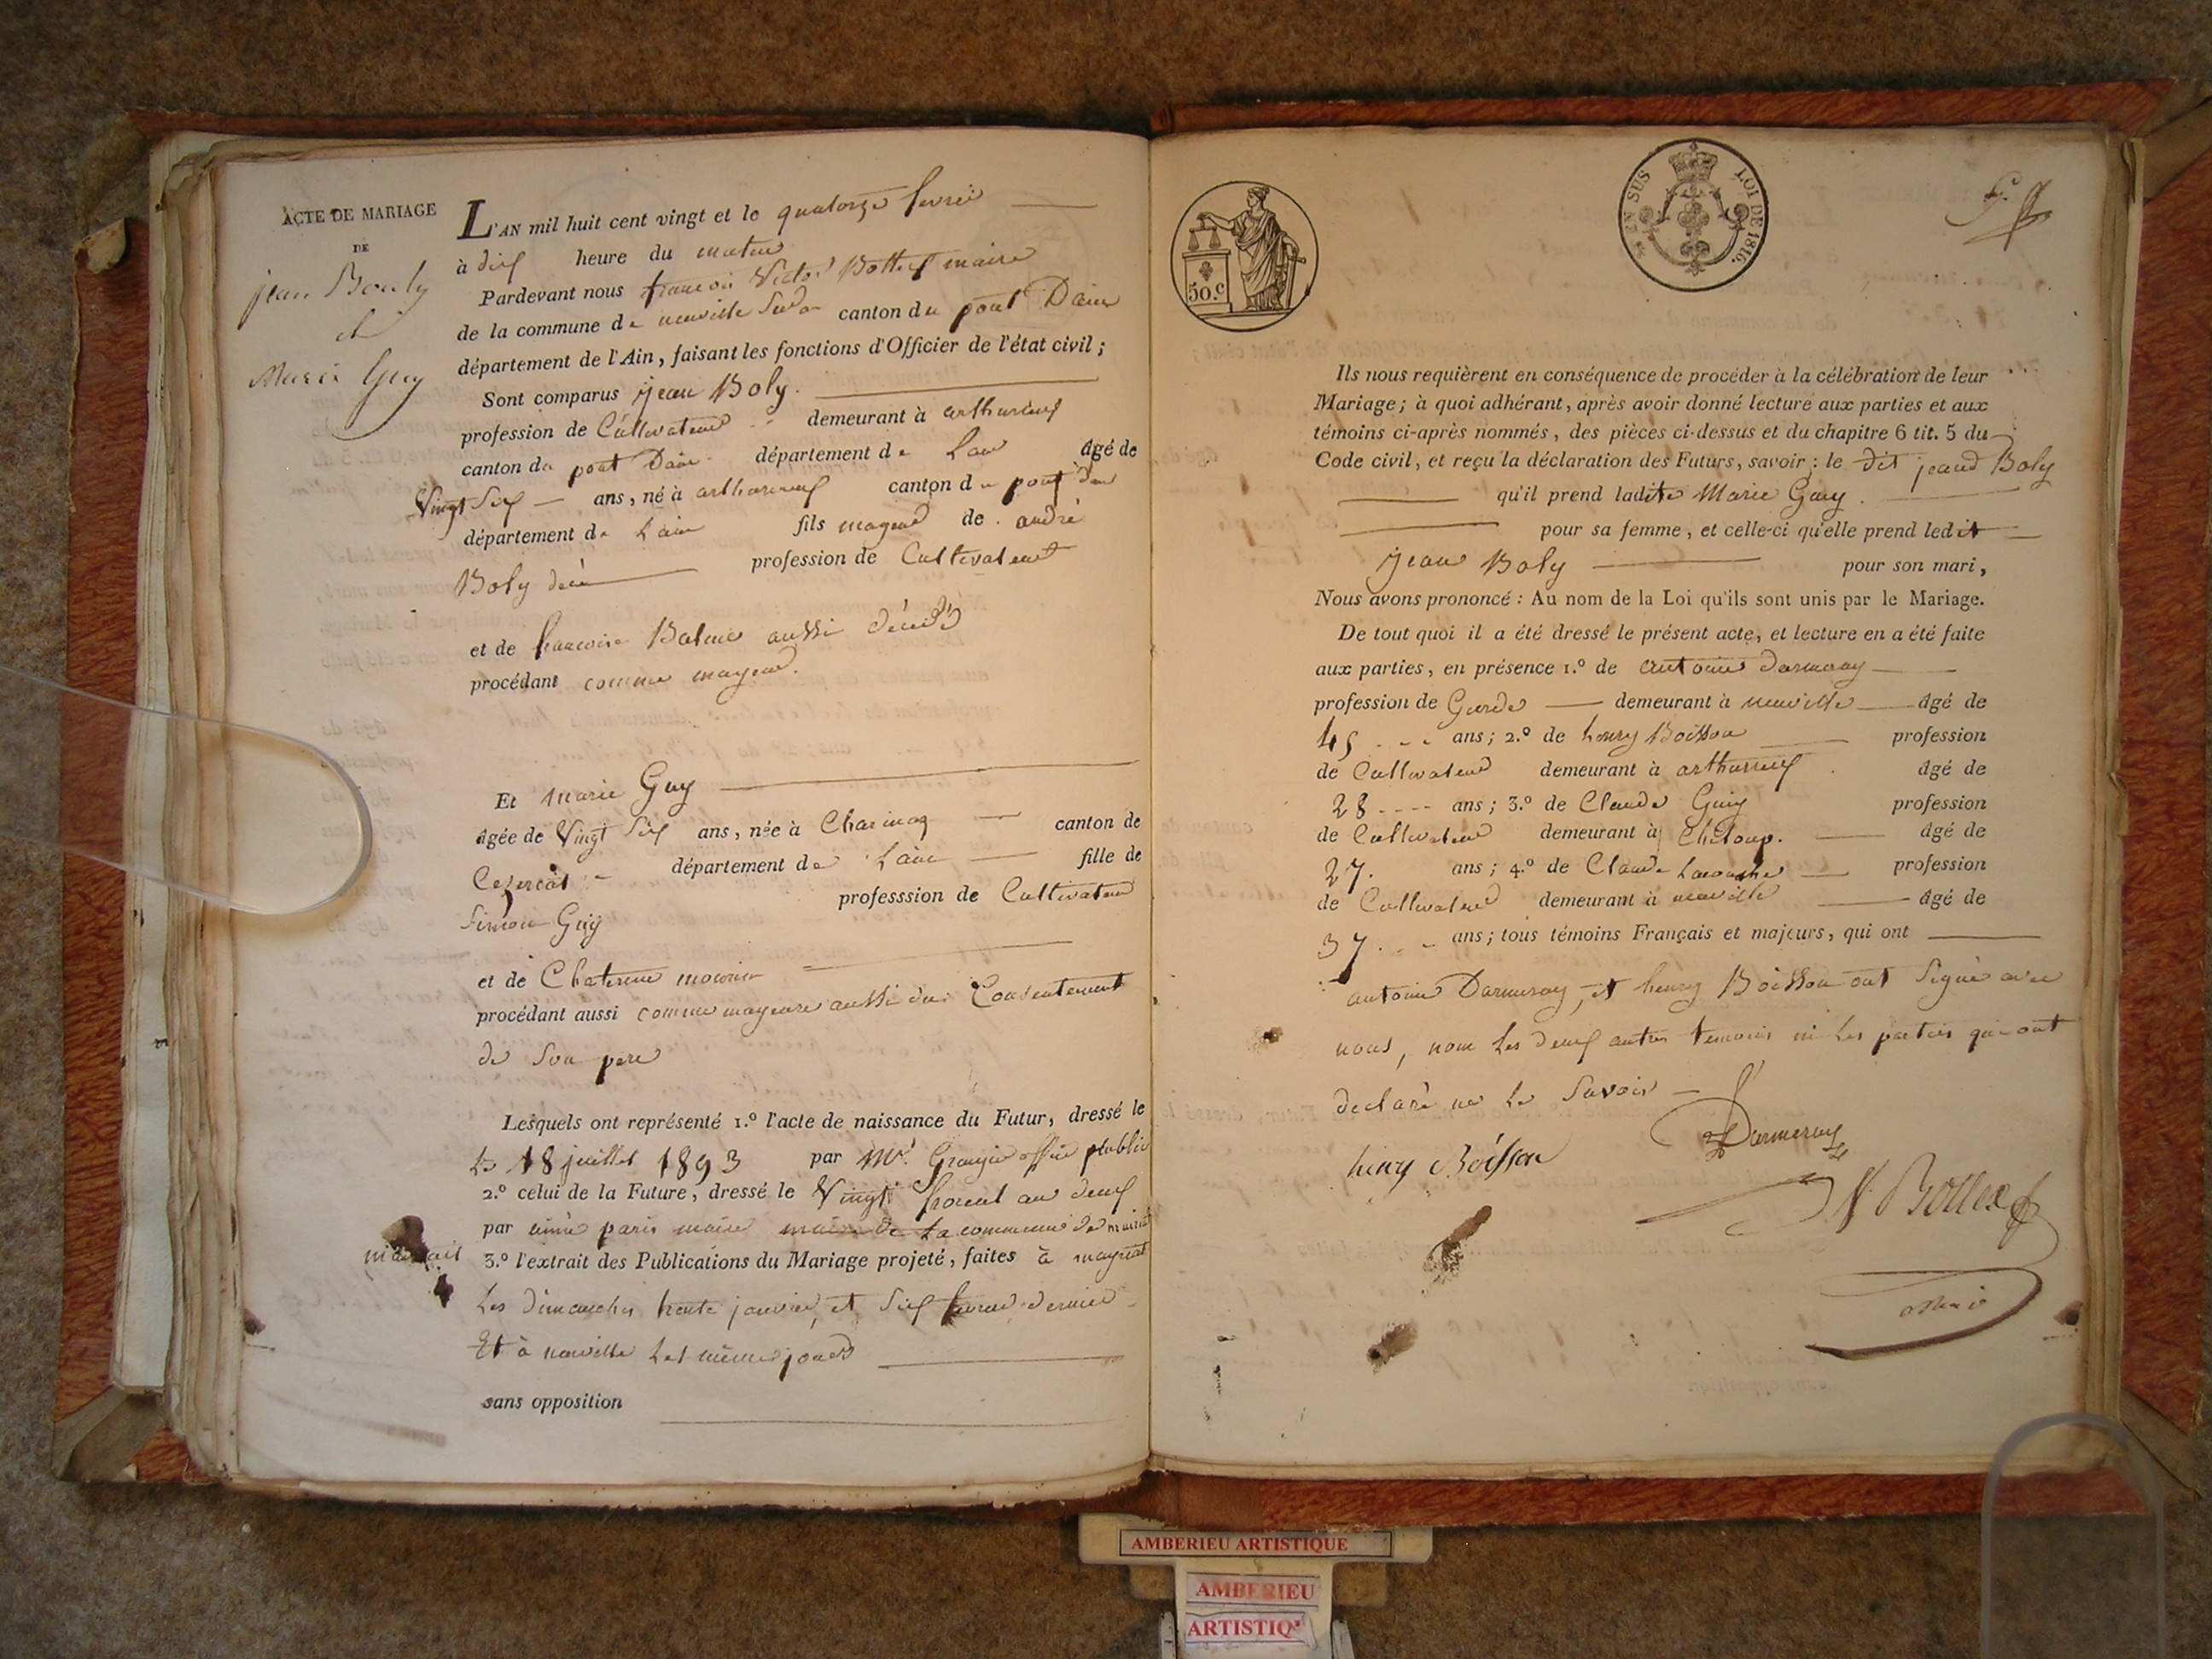 ACTE DE MARIAGE
DE
jean Bouly
et
Marie Guy
L'AN mil huit cent vingt et le quatorze fevrier
à dix heure du matin
Pardevant nous francois Victor Bottex maire
de la commune de neuville Sur canton du pont Dain
département de l'Ain, faisant les fonctions d'Officier de l'état civil;
Sont comparus jean Boly.
profession de Cultivateur demeurant à arthureux
canton du pont Dain département de Lain âgé de
Vingt Six ans, né à arthureux canton du pont dain
département de Lain fils mageur de andré
Boly profession de Cultivateur
et de francoise Balme aussi décédé
procédant comme mageur.
Et Marie Guy
âgée de Vingt Six ans, née à canton de
Ceyzeriat département de Lain fille de
Simon Guy professsion de Cultivateur
et de Chaterine
procédant aussi comme mageure aussi du Consentement
de Son pere
Lesquels ont représenté 1.º l'acte de naissance du Futur, dressé le
Le 18 juillet 1893 par Mr. public
2.º celui de la Future, dressé le Vingt an deux
par paris maire maire de La commune de
3.º l'extrait des Publications du Mariage projeté, faites à
Les Dimanches trente janvier, et Six fevrier dernier
Et à neuville Les même jours
sans opposition
50.c
EN SUS
LOI DE 1816.
Ils nous requièrent en conséquence de procéder à la célébration de leur
Mariage; à quoi adhérant, après avoir donné lecture aux parties et aux
témoins ci-après nommés, des pièces ci-dessus et du chapitre 6 tit. 5 du
Code civil, et reçu la déclaration des Futurs, savoir: le dit jean Boly
qu'il prend ladite Marie Guy.
pour sa femme, et celle-ci qu'elle prend ledit
jean Boly pour son mari,
Nous avons prononcé: Au nom de la Loi qu'ils sont unis par le Mariage.
De tout quoi il a été dressé le présent acte, et lecture en a été faite
aux parties, en présence 1.º de antoine Darmeray
profession de Garde demeurant à neuville âgé de
45 ans; 2.º de henry Boisson profession
de Cultivateur demeurant à arthureux âgé de
28 ans; 3.º de Claude Guy profession
de Cultivateur demeurant à Cheloup. âgé de
27. ans; 4.º de Claude profession
de Cultivateur demeurant à neuville âgé de
37. ans; tous témoins Français et majeurs, qui ont
antoine Darmeray, et henry Boisson ont Signé avec
nous, non Les deux autres temoins ni Les parties qui ont
declaré ne Le Savoir
henry Boisson
Darmeray
V. Bottex
AMBERIEU ARTISTIQUE
AMBERIEU
ARTISTIQ